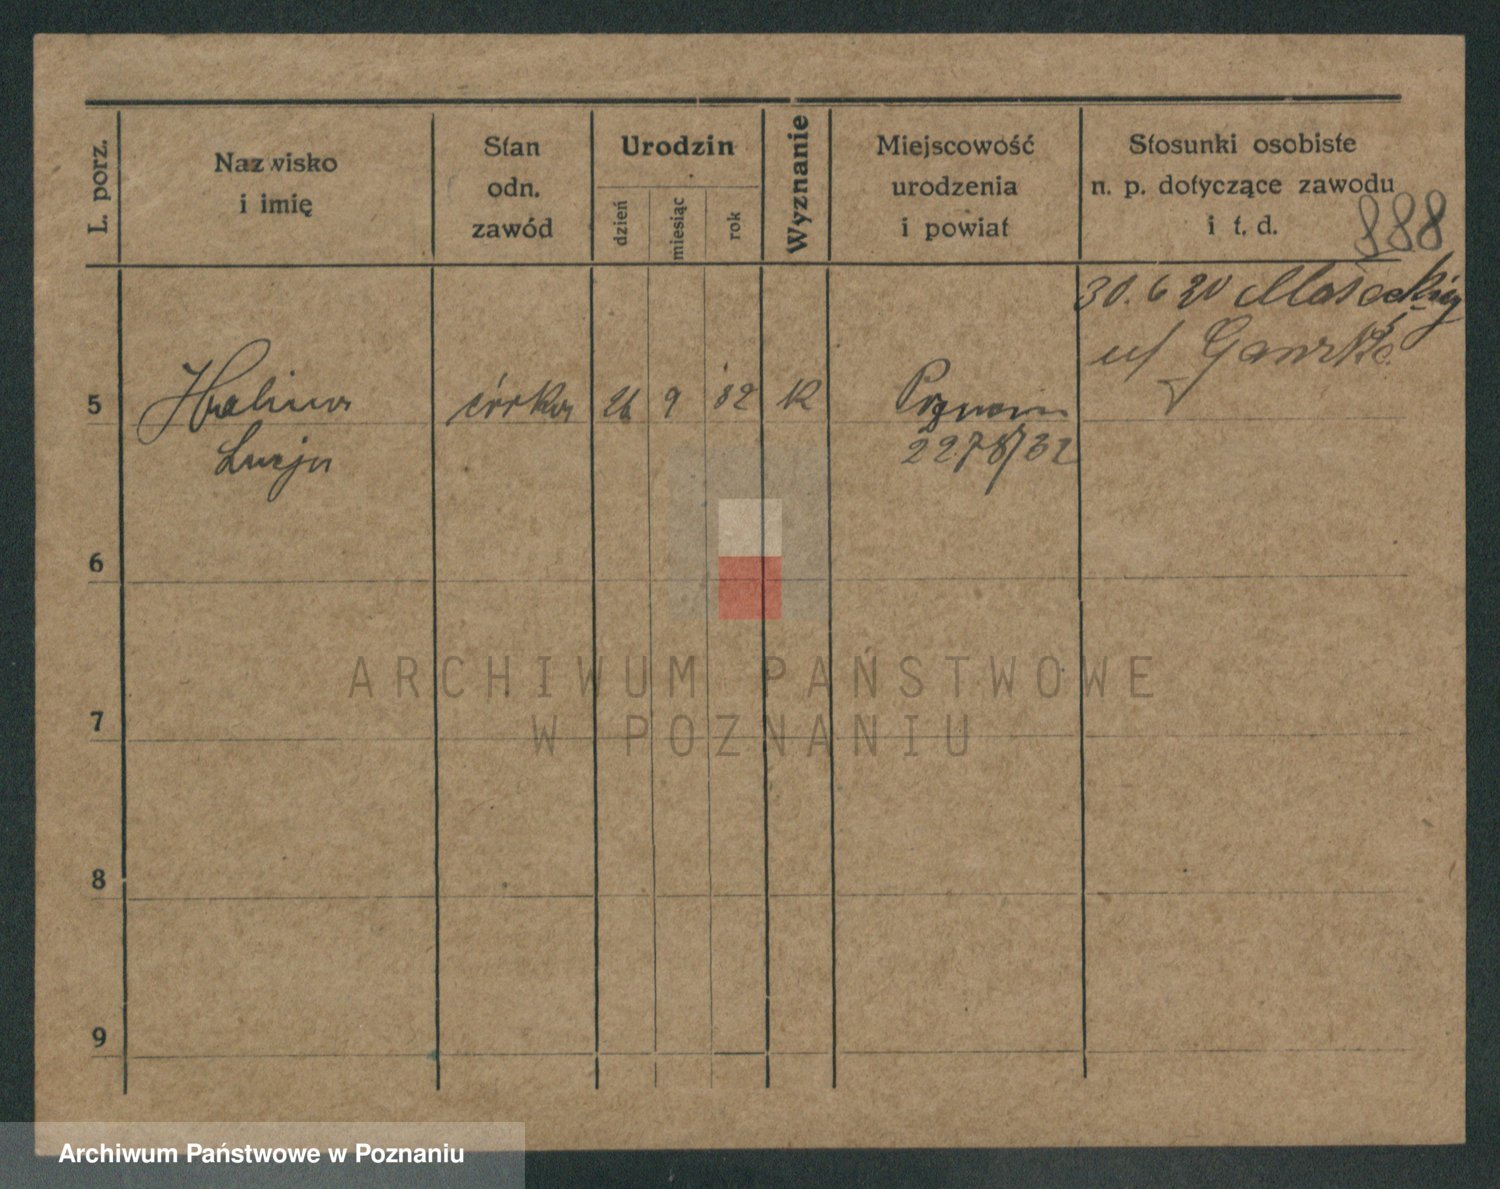 L. porz.
Nazwisko
i imię
Stan
odn.
zawód
Urodzin
dzień
miesiąc
rok
Wyznanie
Miejscowość
urodzenia
i powiat
Stosunki osobiste
n. p. dotyczące zawodu
i t. d.
888
30. 6 20
5
Halina córka 26 9 32 K Poznań
Łucja
6
7
8
9
ARCHIWUM PAŃSTWOWE
W POZNANIU
Archiwum Państwowe w Poznaniu